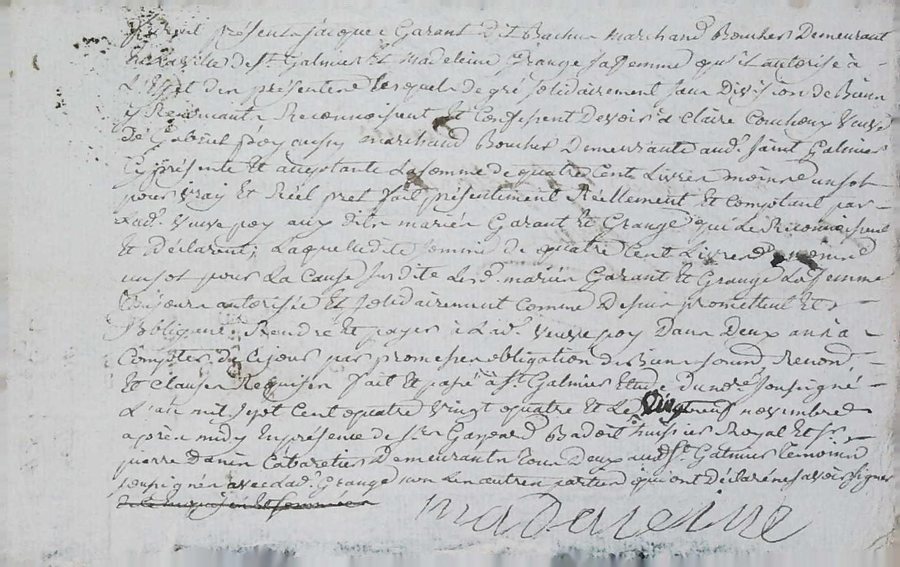 furent présents Jacque Garant Dit Bachu Marchand Boucher Demeurant
En la ville de St Galmier Et Madeleine Grange sa femme qu'il autorise à
L'Effet du présent Lesquels de gré solidairement sans Division de Biens
y Renoncants Reconnoissent Et Confessent devoir à Claire Couchoux Veuve
de Gabriel poy marchand Boucher Demeurante aud. Saint Galmier
Cy présente Et acceptante La somme de quatre Cent Livres moins un sol
pour vray Et Réel prêt fait présentement Réellement Et Comptant par
Lad. Veuve poy aux dits mariés Garant Et Grange qui Le Reconnoissent
Et Déclarent; Laquelle dite somme de quatre Cent Livres moins
un sol pour La Cause susdite Les d. mariés Garant Et Grange La femme
toujours autorisée Et solidairement Comme Dessus promettent Et
s'obligent Rendre Et payer à Lad. Veuve poy Dans Deux ans à
Compter de Ce jour par promesse obligation de Biens soumd Renond
Et Clauses Requises fait Et passé à St Galmier Etude du nore soussigné
L'an mil sept Cent quatre Vingt quatre Et Le Vingt neuf novembre
après midy En présence de Sr Gaspard Badoit huissier Royal Et Sr
pierre Danin Cabaretier Demeurants tous Deux aud. St Galmier témoins
soussignés avec lad. Grange non Les autres parties qui ont déclaré ne savoir signer
madeleine